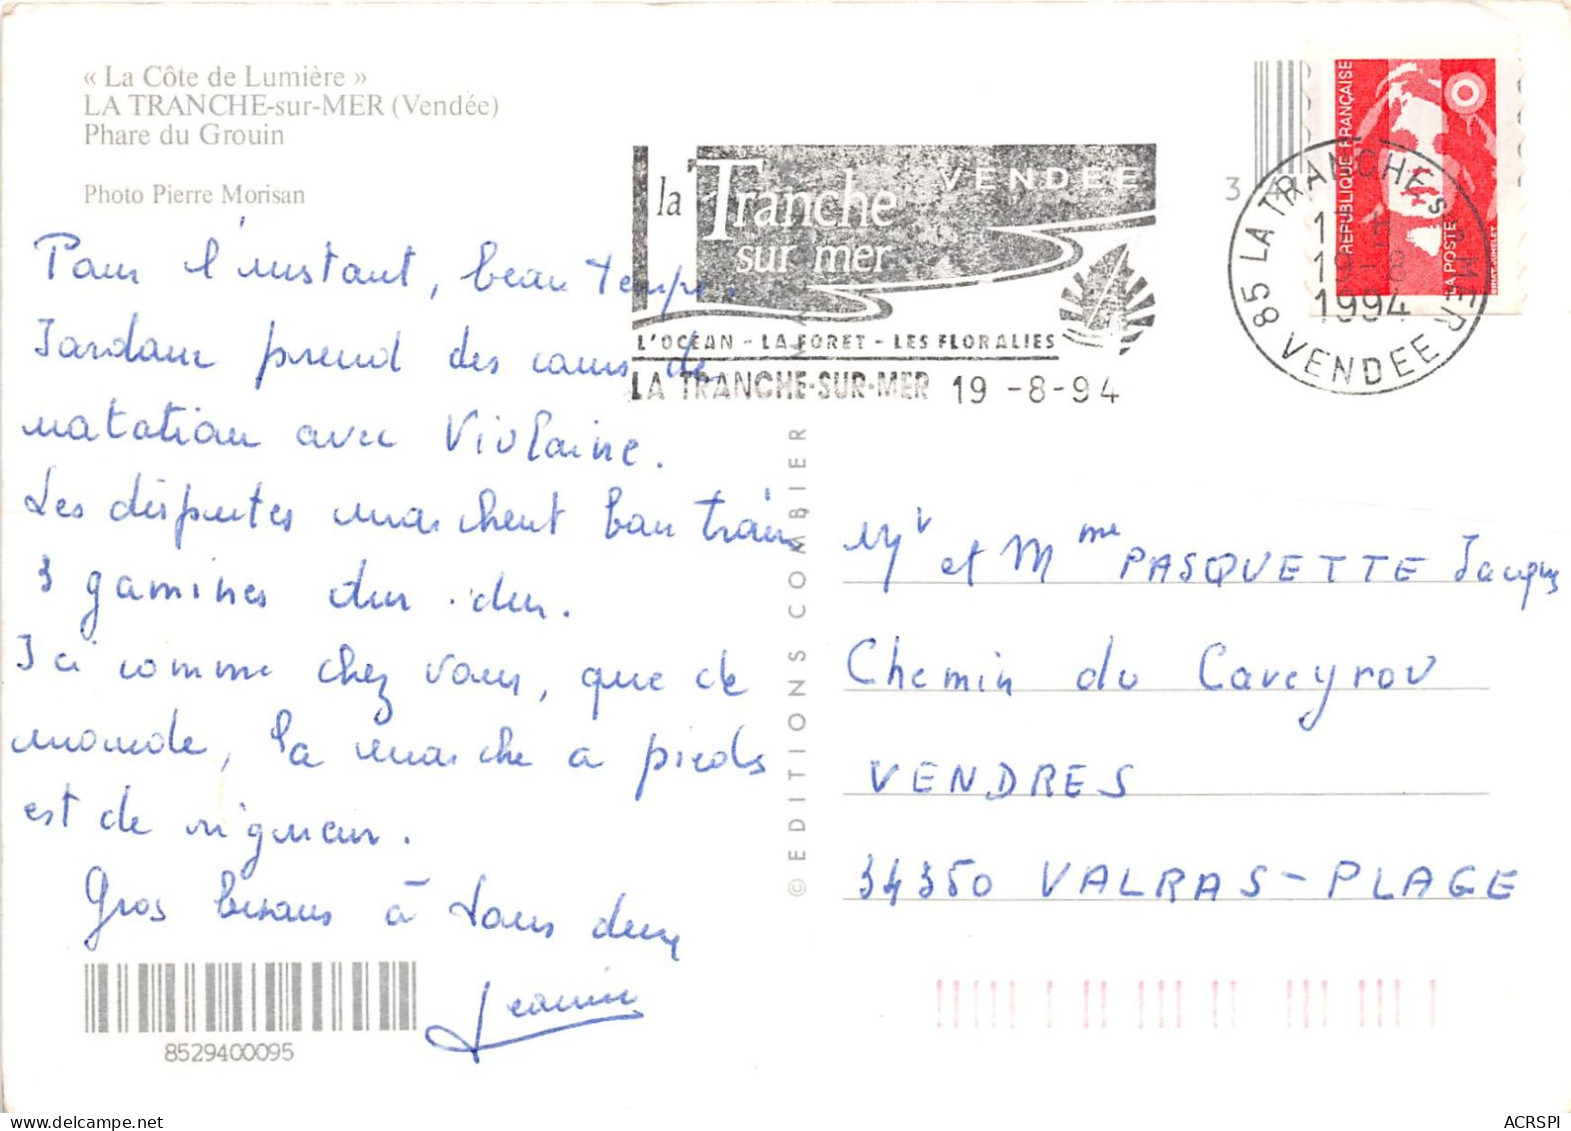 « La Côte de Lumière »
LA TRANCHE-sur-MER (Vendée)
Phare du Grouin
Photo Pierre Morisan
Pour l'instant, beau temps.
Jordane prend des cours de
natation avec Violaine.
Les disputes marchent bon train
3 gamines dur.dur.
Ici comme chez vous, que de
monde, la marche a pieds
est de rigueur.
Gros bisous à tous deux
Jeanine
8529400095
la Tranche
sur mer
VENDEE
L'OCEAN - LA FORET - LES FLORALIES
LA TRANCHE-SUR-MER 19 -8-94
© EDITIONS COMBIER
3
REPUBLIQUE FRANÇAISE
LA POSTE
85 LA TRANCHE S MER
1994
VENDEE
Mr et Mme PASQUETTE Jacques
Chemin du Caveyrou
VENDRES
34350 VALRAS-PLAGE
ACRSPI